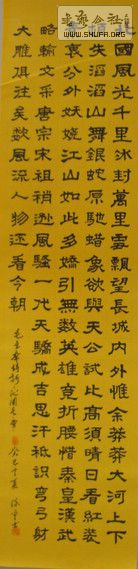 www.SHUFA.ORG
國風光千里冰封萬里雪飄望長城內外惟余莽莽大河上下
失滔滔山舞銀蛇原馳蜡象欲與天公試比高須晴日看紅裝
裹分外妖娆江山如此多嬌引無數英雄竟折腰惜秦皇漢武
略輸文采唐宗宋祖稍遜風騷一代天驕成吉思汗祗識彎弓射
大雕俱往矣數風流人物還看今朝
毛主席詩詞沁園春雪 癸巳